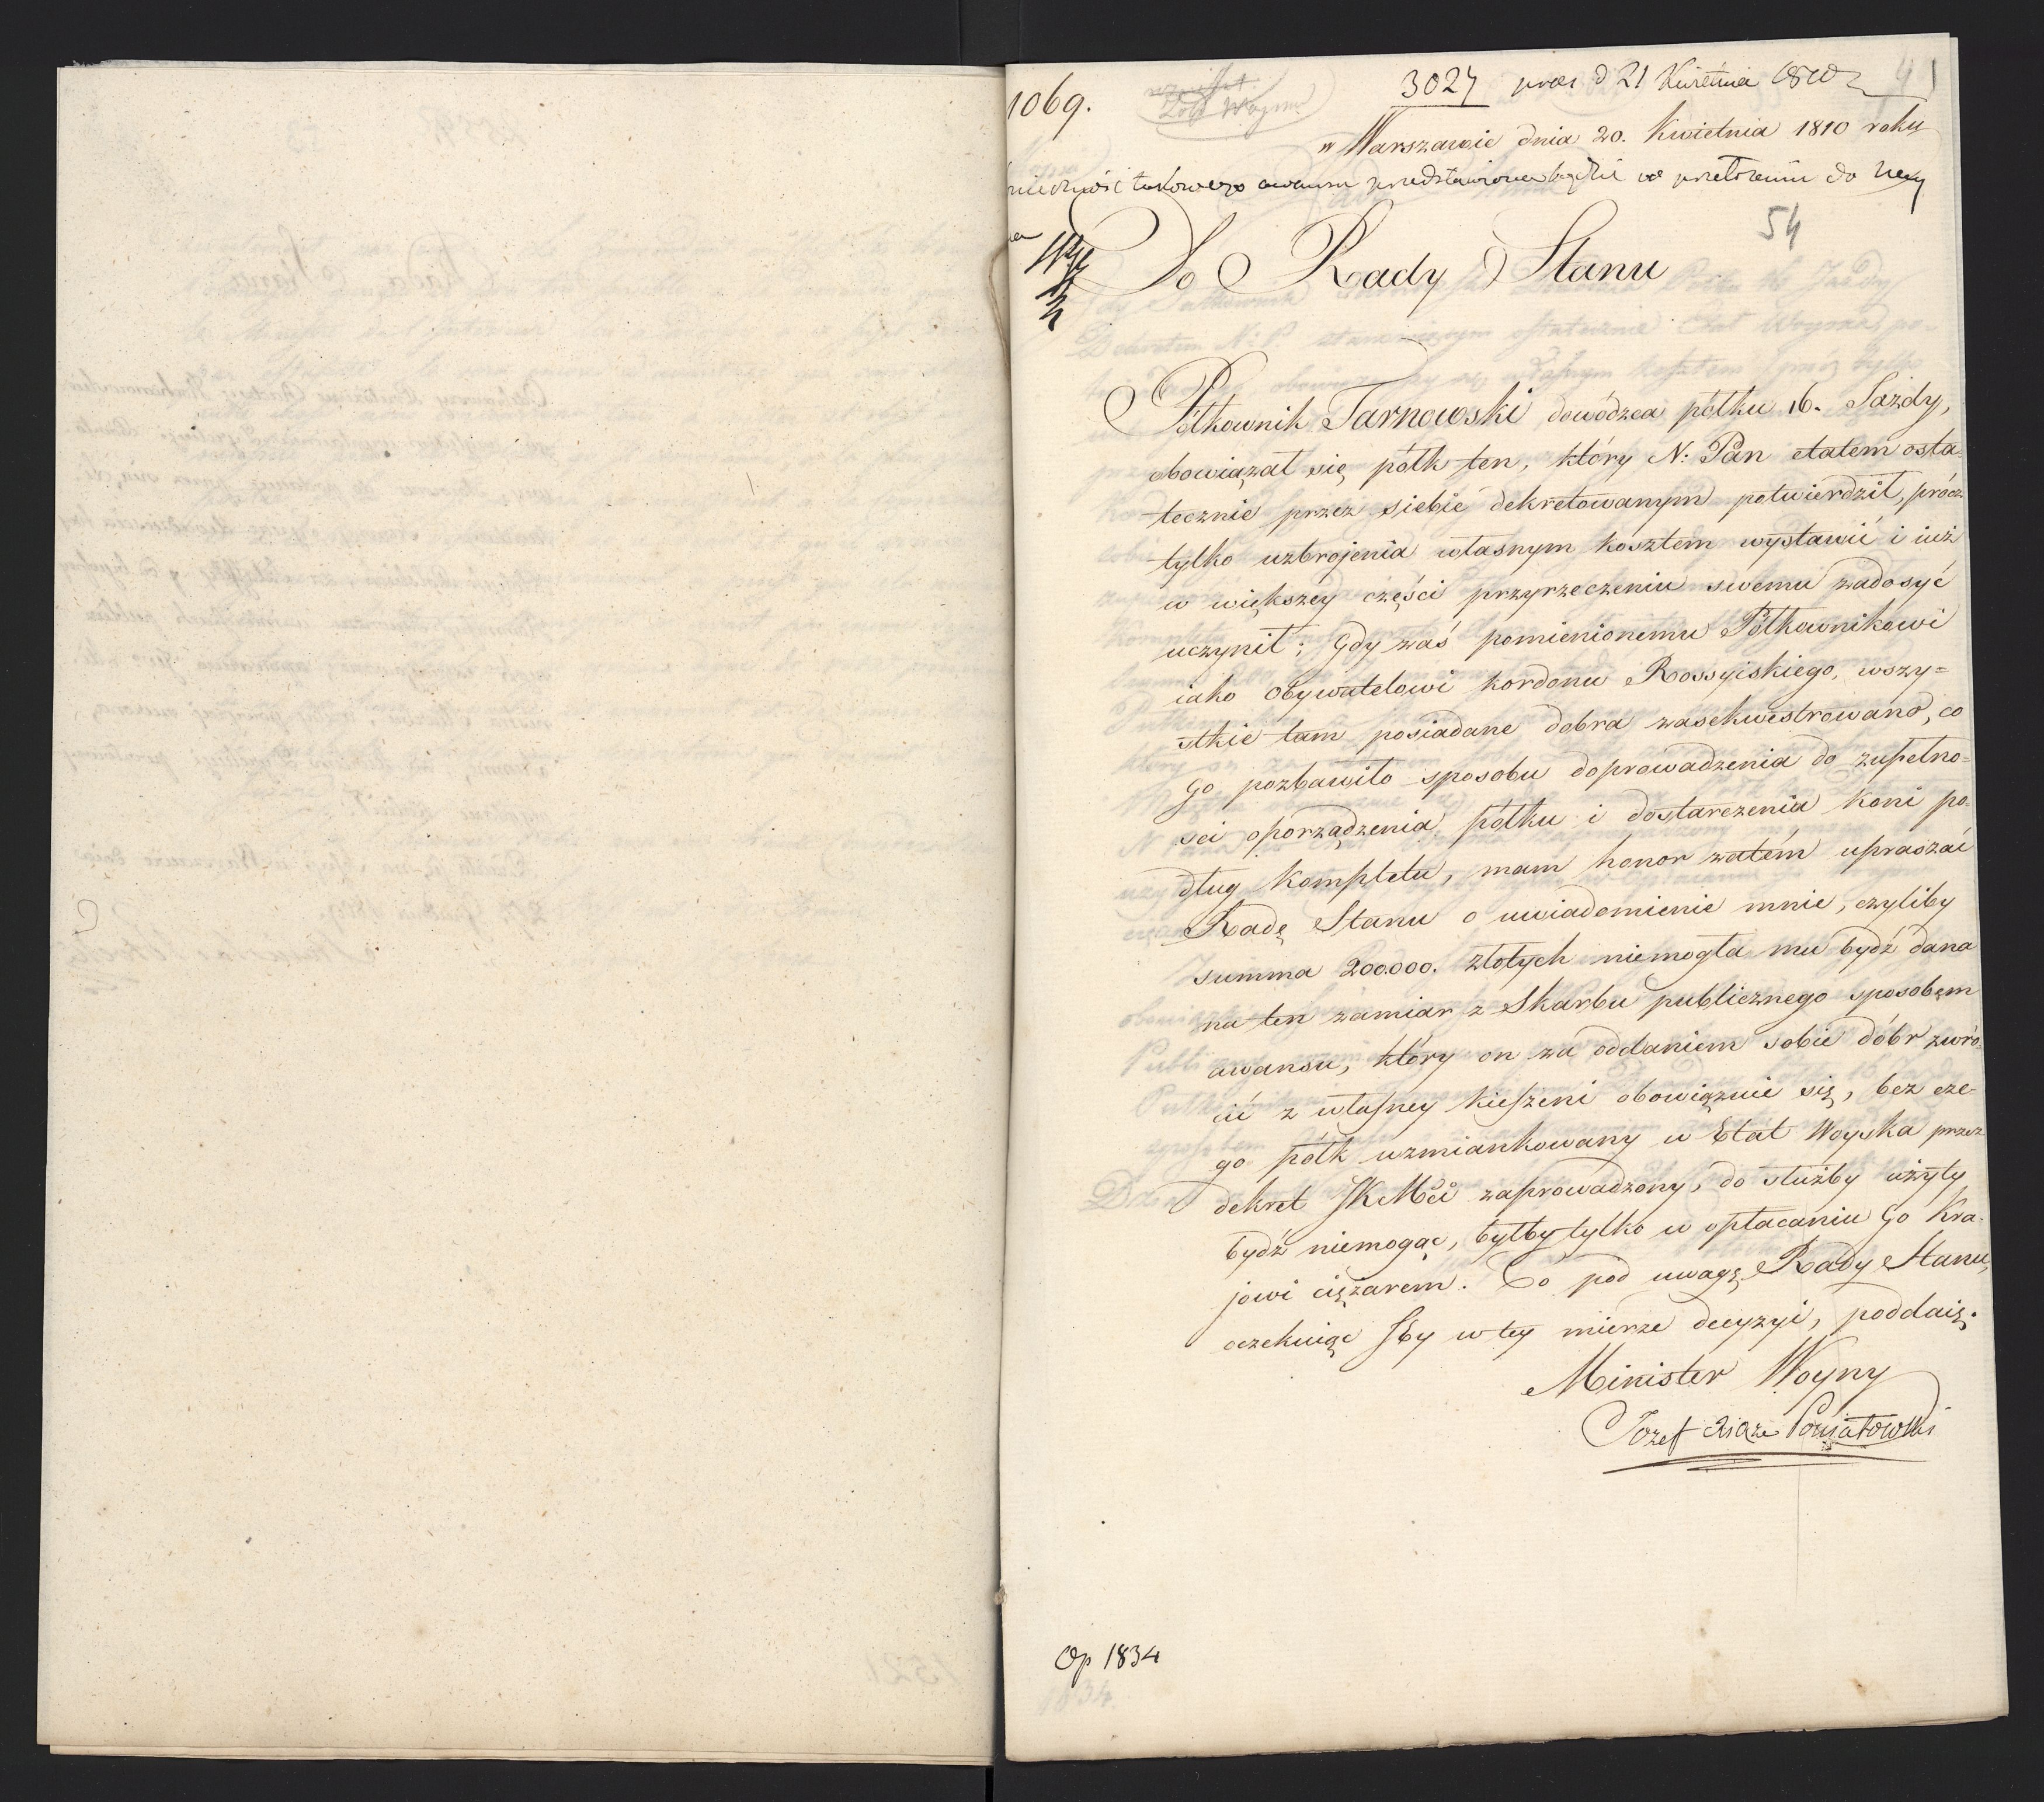 1069.
3027 pres d 21 Kwietnia 1810
41
w Warszawie dnia 20. Kwietnia 1810 roku
takowego awansu przedstawione będzie do
54
Do Rady Stanu
Półkownik Tarnowski dowódzca półku 16. Jazdy,
obowiązał się półk ten, który N: Pan etatem osta-
tecznie przez siebie dekretowanym potwierdził, prócz
tylko uzbrojenia własnym kosztem wystawić i iuż
w większey części przyrzeczeniu swemu zadosyć
uczynił; Gdy zaś pomienionemu Półkownikowi
iako Obywatelowi kordonu Rossyiskiego, wszy=
stkie tam posiadane dobra zasekwestrowano, co
go pozbawiło sposobu doprowadzenia do zupełno=
sci oporządzenia półku i dostarczenia koni po=
dług kompletu, mam honor zatém upraszać
Radę Stanu o uwiadomienie mnie, czyliby
summa 200.000. złotych niemogła mu bydź dana
na ten zamiar z Skarbu publicznego sposobem
awansu, który on za oddaniem sobie dóbr zwró-
cić z własney kieszeni obowiązuie się, bez cze-
go półk wzmiankowany w Etat Woyska przez
dekret JKMći zaprowadzony, do służby użyty
bydź niemogąc, byłby tylko w opłacaniu go kra-
jowi ciężarem. Co pod uwagę Rady Stanu,
oczekuiąc Jéy w tey mierze decyzyi, poddaię.
Minister Woyny
Józef Xiąże Poniatowski
Op 1834